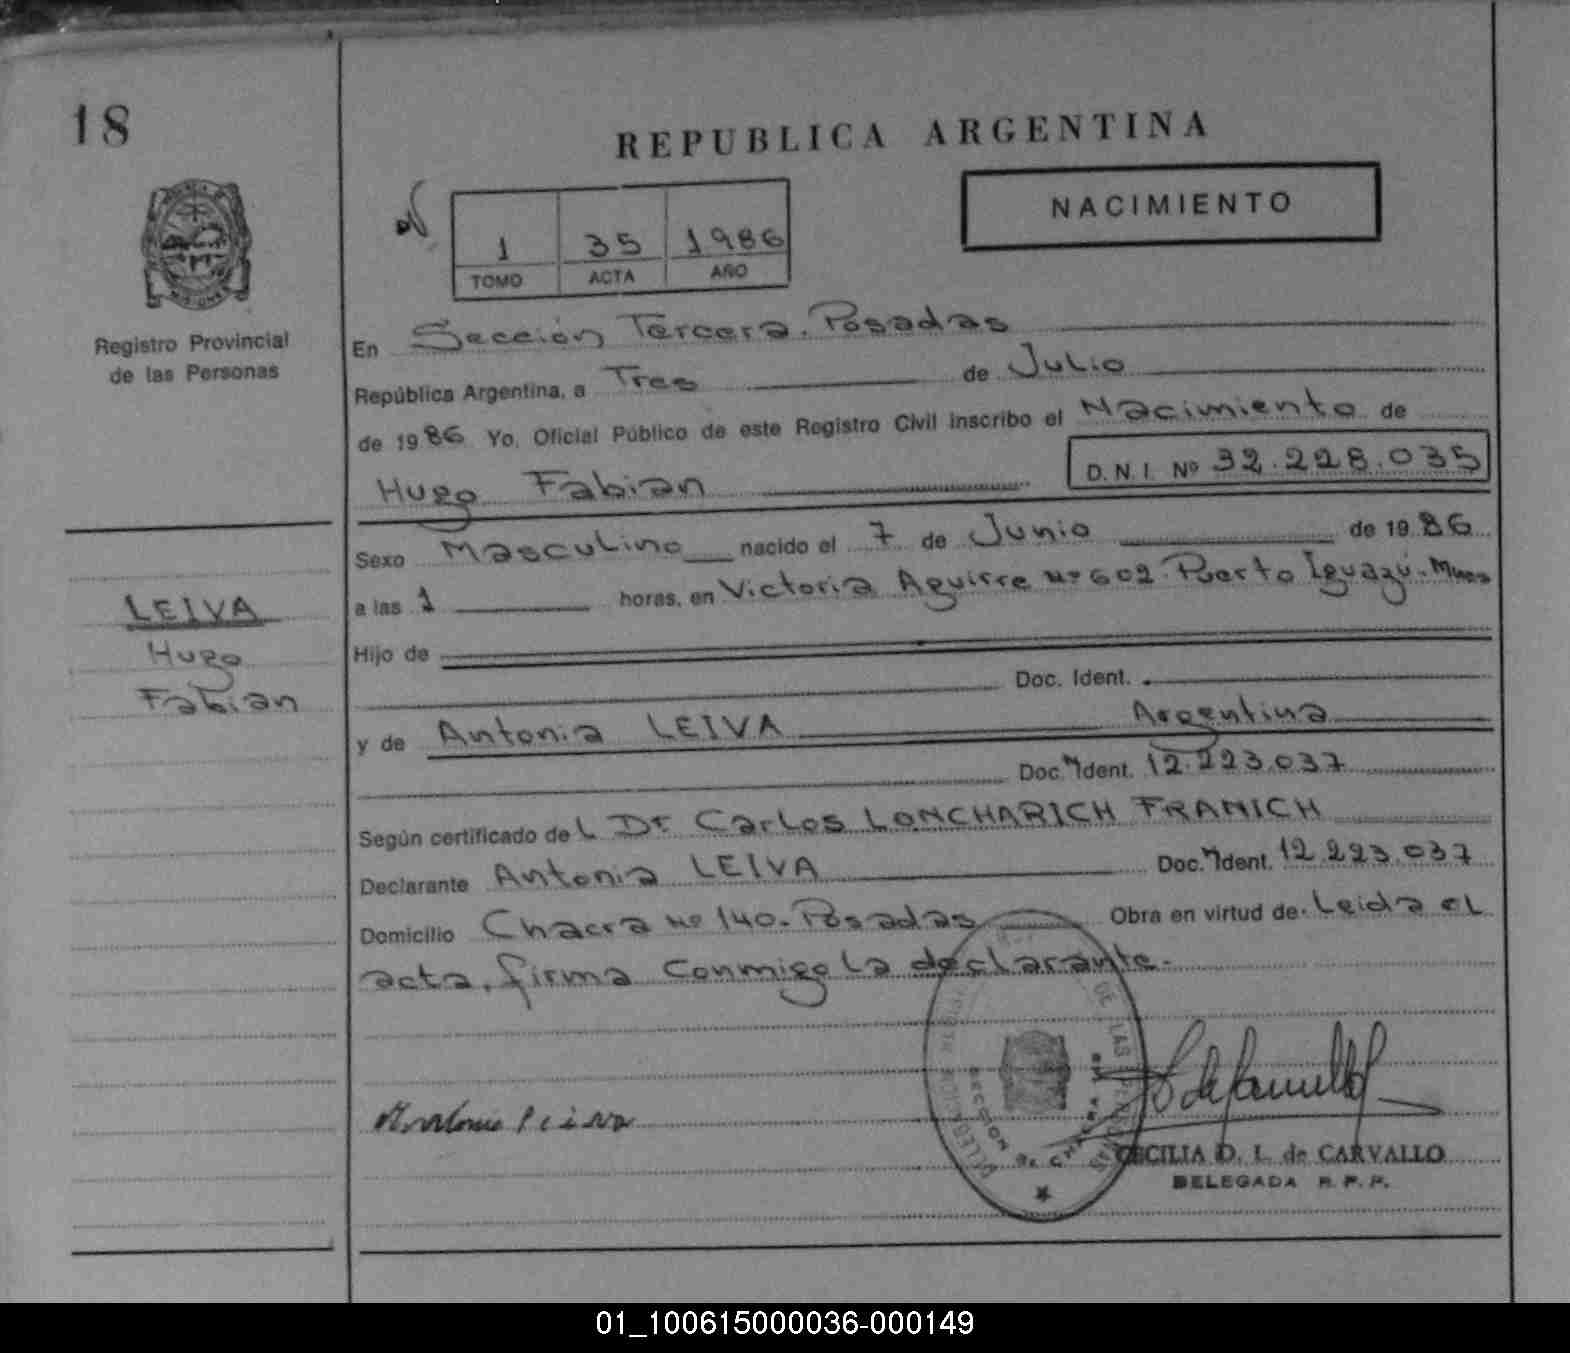 18
REPUBLICA ARGENTINA
NACIMIENTO
1 35 1986
TOMO ACTA AÑO
Registro Provincial
de las Personas
En Sección Tercera. Posadas
República Argentina, a Tres de Julio
de 1986 Yo, Oficial Público de este Registro Civil inscribo el Nacimiento de
Hugo Fabian D. N. I. Nº 32.228.035
Sexo Masculino nacido el 7 de Junio de 1986
a las 1 horas, en Victoria Aguirre Nº 602. Puerto Iguazú. Mnes
LEIVA
Hugo
Fabian
Hijo de
Doc. Ident.
y de Antonia LEIVA Argentina
Doc. Ident. 12.223.037
Según certificado del Dr Carlos LONCHARICH FRANICH
Declarante Antonia LEIVA Doc. Ident. 12.223.037
Domicilio Chacra Nº 140. Posadas Obra en virtud de. Leida el
acta, firma conmigo la declarante.
DE LAS PERSONAS
Antonia Leiva
CECILIA D. L. de CARVALLO
DELEGADA R. P. P.
01_100615000036-000149